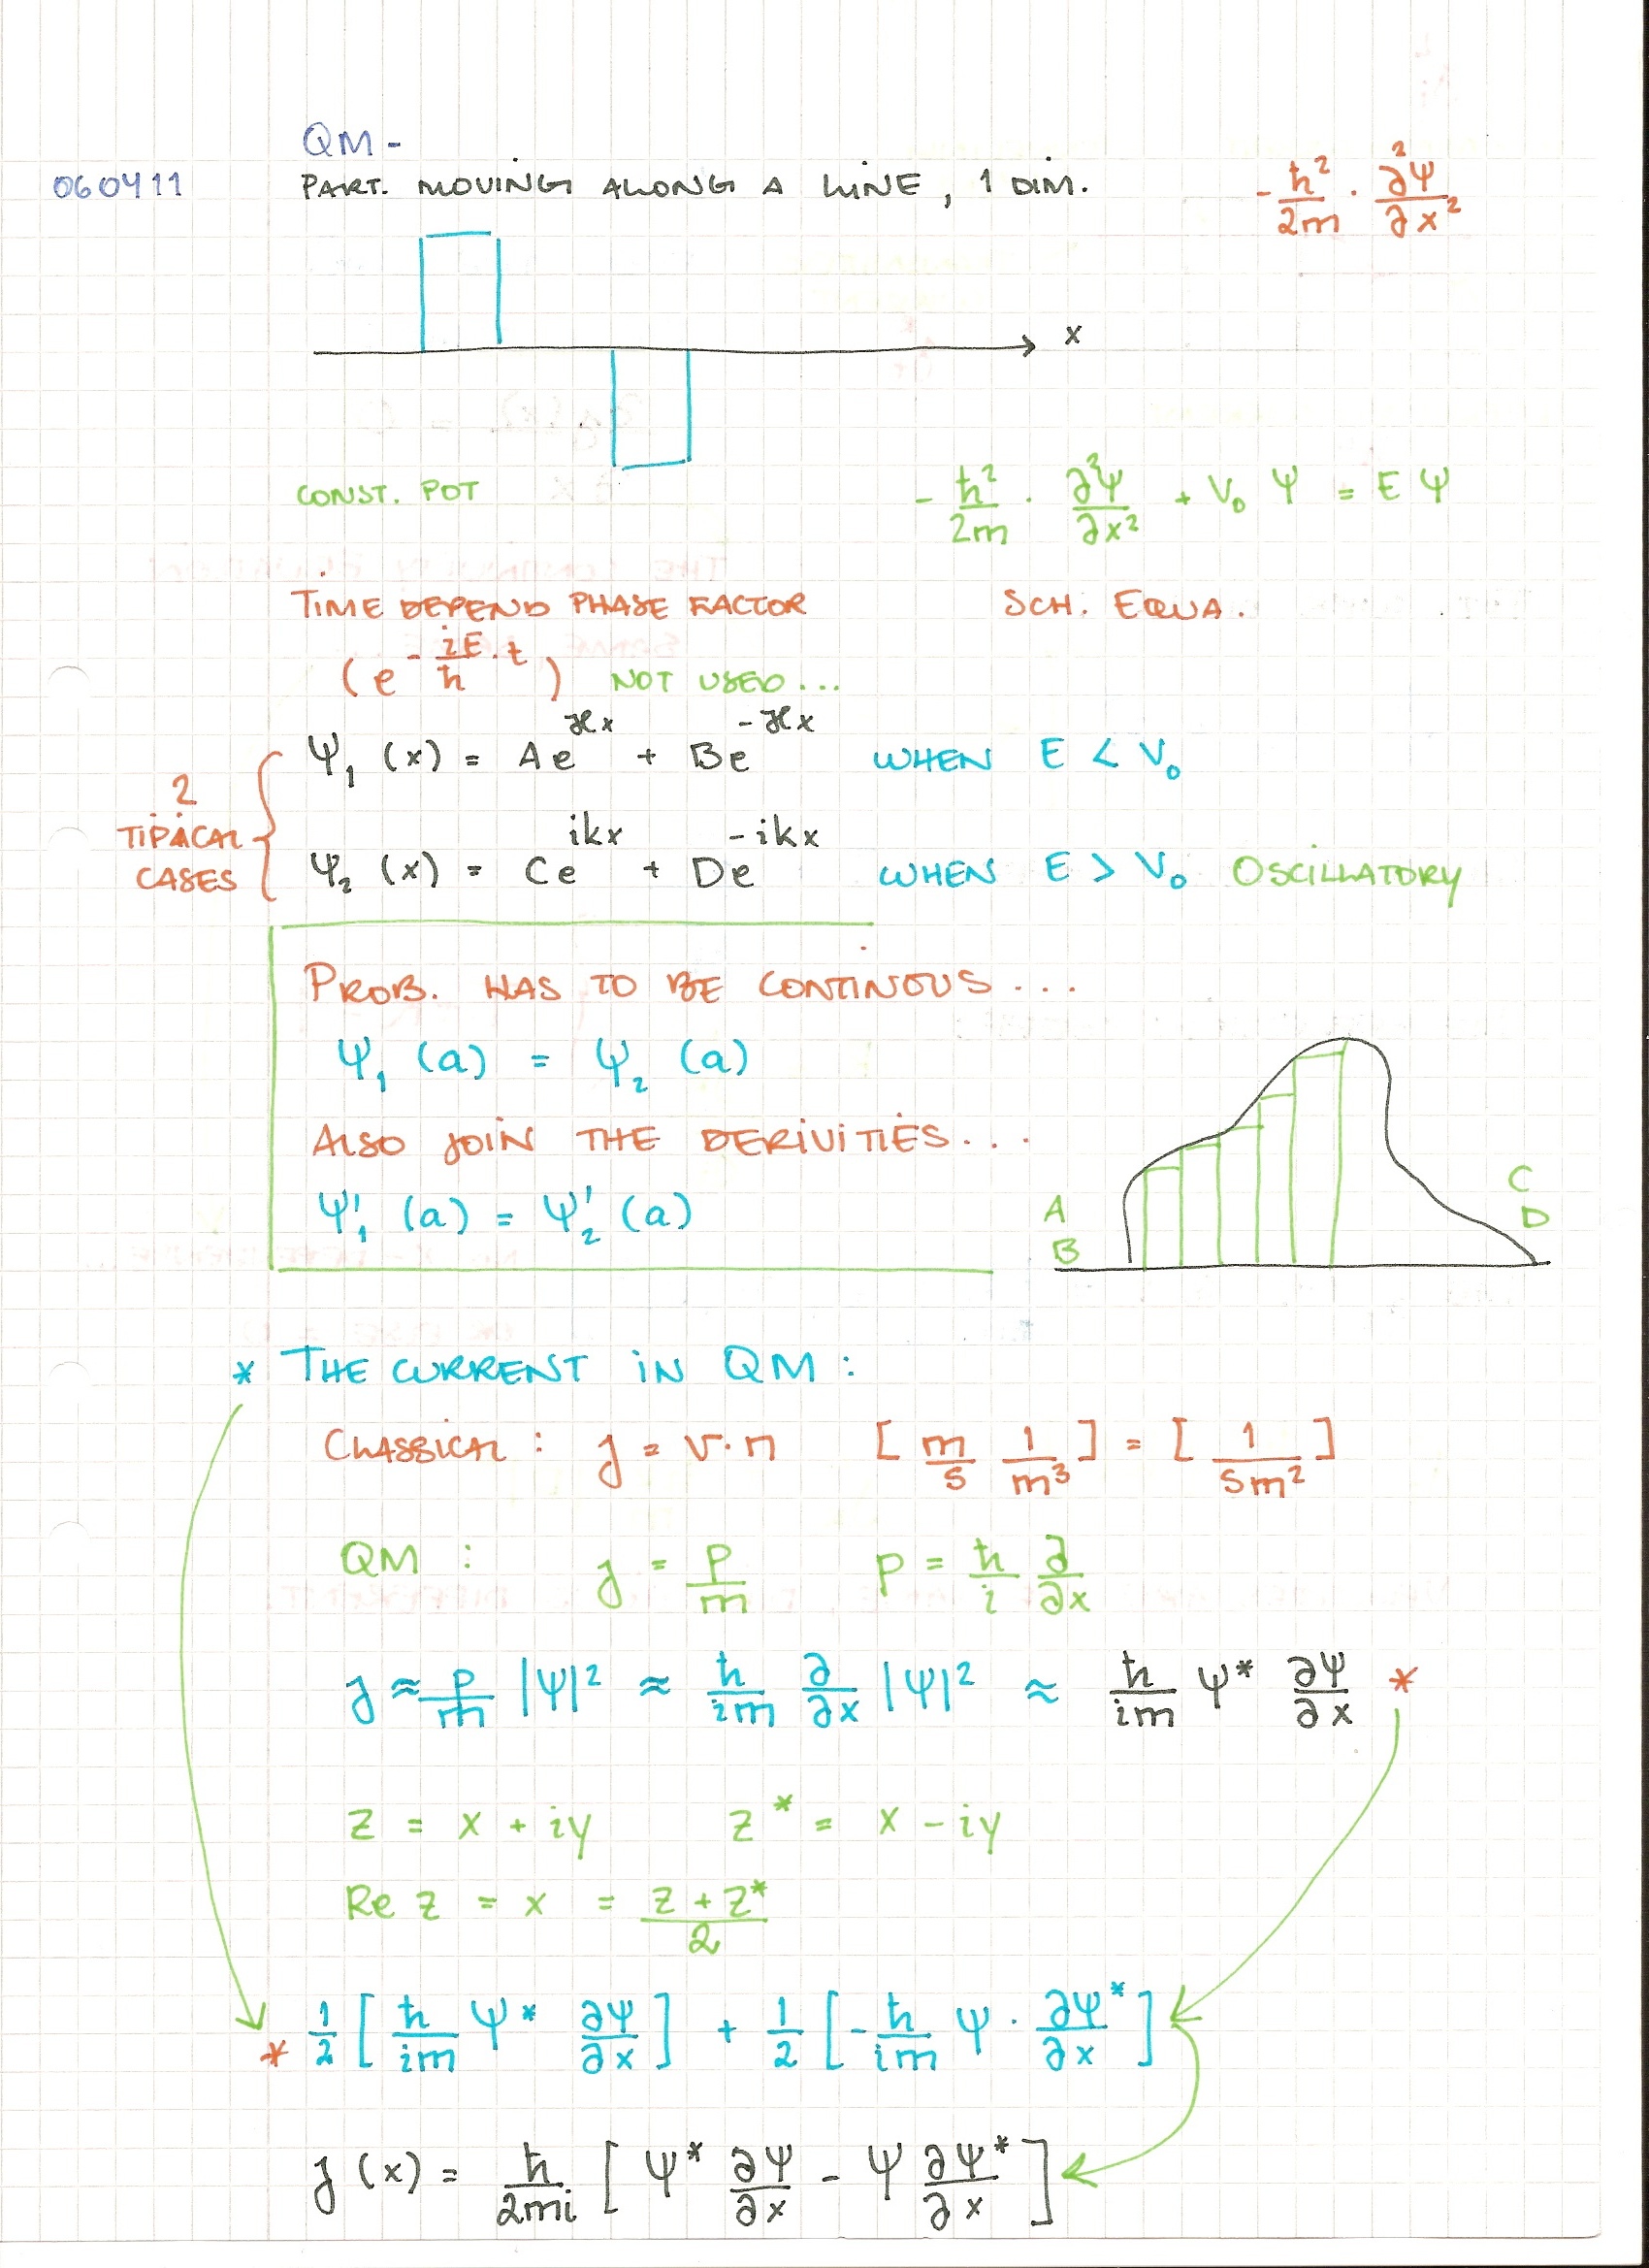 QM -
060411 PART. MOVING ALONG A LINE, 1 DIM. -ħ²/2m · ∂²Ψ/∂x²
x
CONST. POT -ħ²/2m · ∂²Ψ/∂x² + V₀ Ψ = E Ψ
TIME DEPEND PHASE FACTOR SCH. EQUA.
(e^(-iE/ħ · t)) NOT USED...
2 TIPICAL CASES {
Ψ₁ (x) = Ae^(ϰx) + Be^(-ϰx) WHEN E < V₀
Ψ₂ (x) = Ce^(ikx) + De^(-ikx) WHEN E > V₀ OSCILLATORY
PROB. HAS TO BE CONTINOUS...
Ψ₁ (a) = Ψ₂ (a)
ALSO JOIN THE DERIVITIES...
Ψ₁' (a) = Ψ₂' (a)
A
B
C
D
* THE CURRENT IN QM :
CLASSICAL : j = v · n [m/s 1/m³] = [1/sm²]
QM : j = p/m p = ħ/i ∂/∂x
j ≈ p/m |Ψ|² ≈ ħ/im ∂/∂x |Ψ|² ≈ ħ/im Ψ* ∂Ψ/∂x *
z = x + iy z* = x - iy
Re z = x = (z + z*)/2
* 1/2 [ħ/im Ψ* ∂Ψ/∂x] + 1/2 [-ħ/im Ψ · ∂Ψ*/∂x]
j (x) = ħ/2mi [Ψ* ∂Ψ/∂x - Ψ ∂Ψ*/∂x]